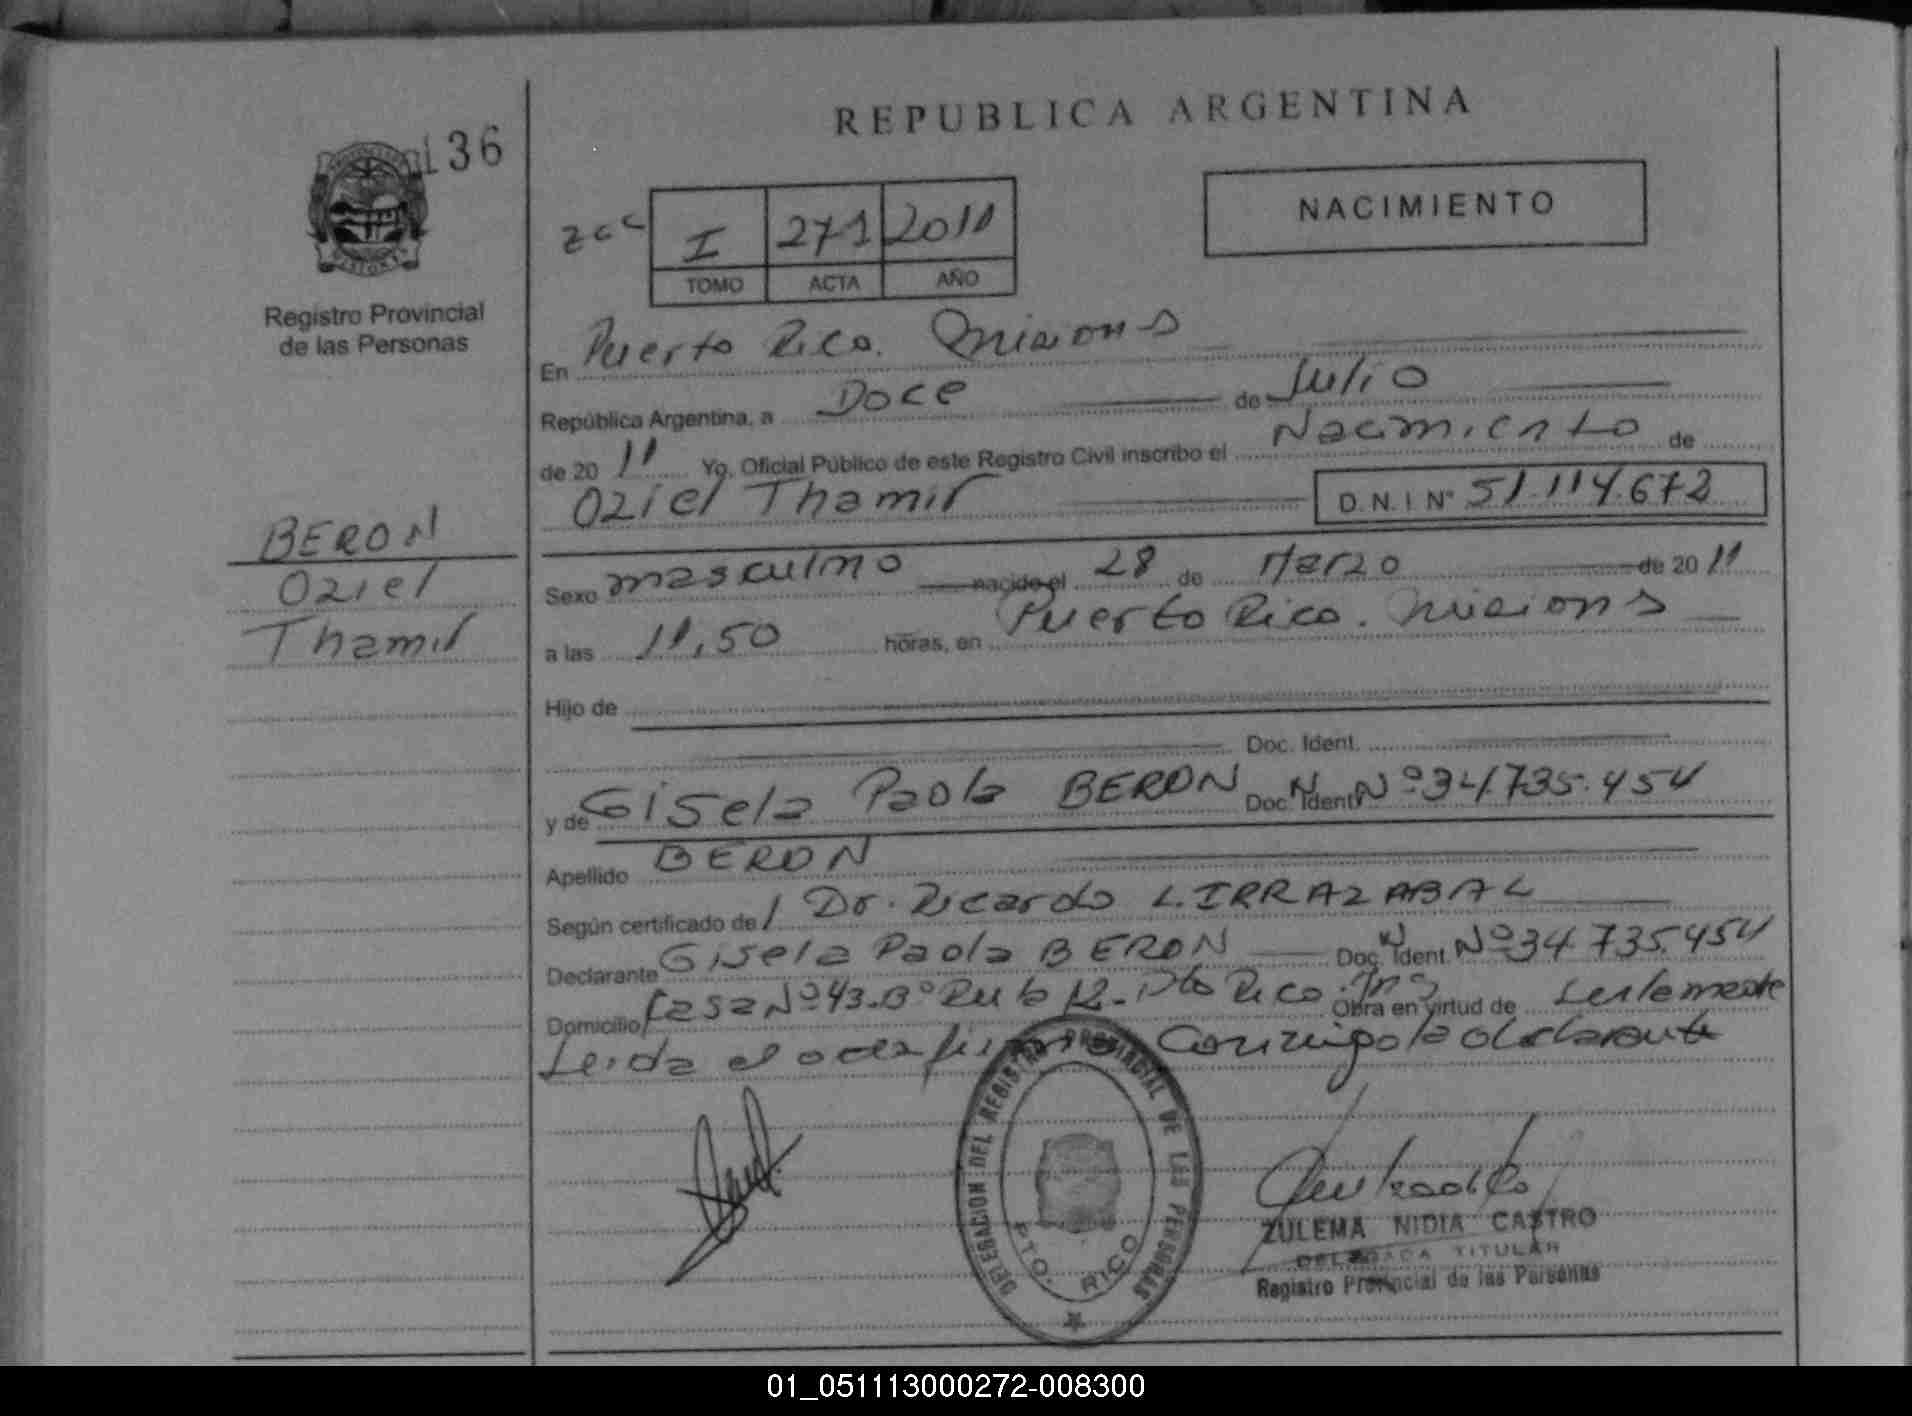 136
REPUBLICA ARGENTINA
NACIMIENTO
I 271 2011
TOMO ACTA AÑO
Registro Provincial
de las Personas
En Puerto Rico. Misiones
República Argentina, a Doce de Julio
de 20 11 Yo, Oficial Público de este Registro Civil inscribo el Nacimiento de
Oziel Thamir D.N.I Nº 51.114.672
BERON
Oziel
Thamir
Sexo masculino nacido el 28 de Marzo de 20 11
a las 11,50 horas, en Puerto Rico. Misiones
Hijo de
Doc. Ident.
y de Gisela Paola BERON Doc. Ident. N Nº 34.735.454
Apellido BERON
Según certificado de Dr. Ricardo L. IRRAZABAL
Declarante Gisela Paola BERON Doc. Ident. N Nº 34.735.454
Domicilio Casa Nº 43 - Bº Ruta 12 - Pto Rico. Mns Obra en virtud de
Leida el acta firma Conmigo la declarante
DELEGACION DEL REGISTRO PROVINCIAL DE LAS PERSONAS
PTO. RICO
ZULEMA NIDIA CASTRO
DELEGADA TITULAR
Registro Provincial de las Personas
01_051113000272-008300